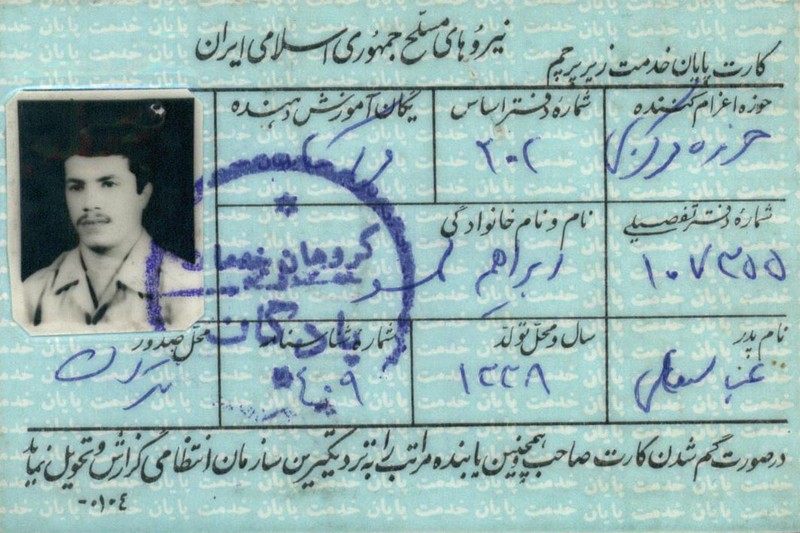 نیروهای مسلّح جمهوری اسلامی ایران
کارت پایان خدمت زیر پرچم
حوزه اعزام کننده
حوزه مرکزی
شمارهٔ دفتر اساس
۳۰۲
یگان آموزش دهنده
مرکز
شمارهٔ دفتر تفصیلی
۱۰۷۳۵۵
نام و نام خانوادگی
ابراهیم
نام پدر
سال و محل تولد
۱۳۳۸
شماره شناسنامه
۴۰۹
محل صدور
گروهان
پادگان
در صورت گم شدن کارت صاحب و همچنین یابنده مراتب را به نزدیکترین سازمان انتظامی گزارش و تحویل نماید
۰۱۰۴-